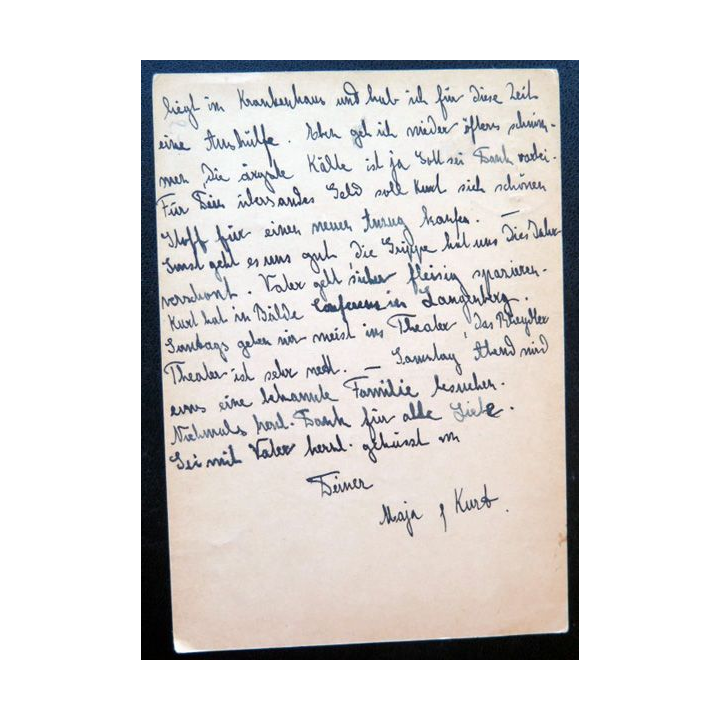 liegt im Krankenhaus und hab ich für diese Zeit
eine Aushülfe. Eben geh ich wieder öfters schwim-
men, die ärgste Kälte ist ja Gott sei Dank vorbei.
Für Dein übersandtes Geld soll Kurt sich schönen
Stoff für einen neuen Anzug kaufen.
Sonst geht es uns gut, die Grippe hat uns dies Jahr
verschont. Vater geht sicher fleissig spazieren.
Kurt hat in Bälde Conferenz in Langenberg.
Sonntags gehen wir meist ins Theater, das Rheydter
Theater ist sehr nett. – Samstag Abend wird
uns eine bekannte Familie besuchen.
Vielmals herzl. Dank für alle Liebe.
Sei mit Vater herzl. geküsst von
Deiner
Maja & Kurt.